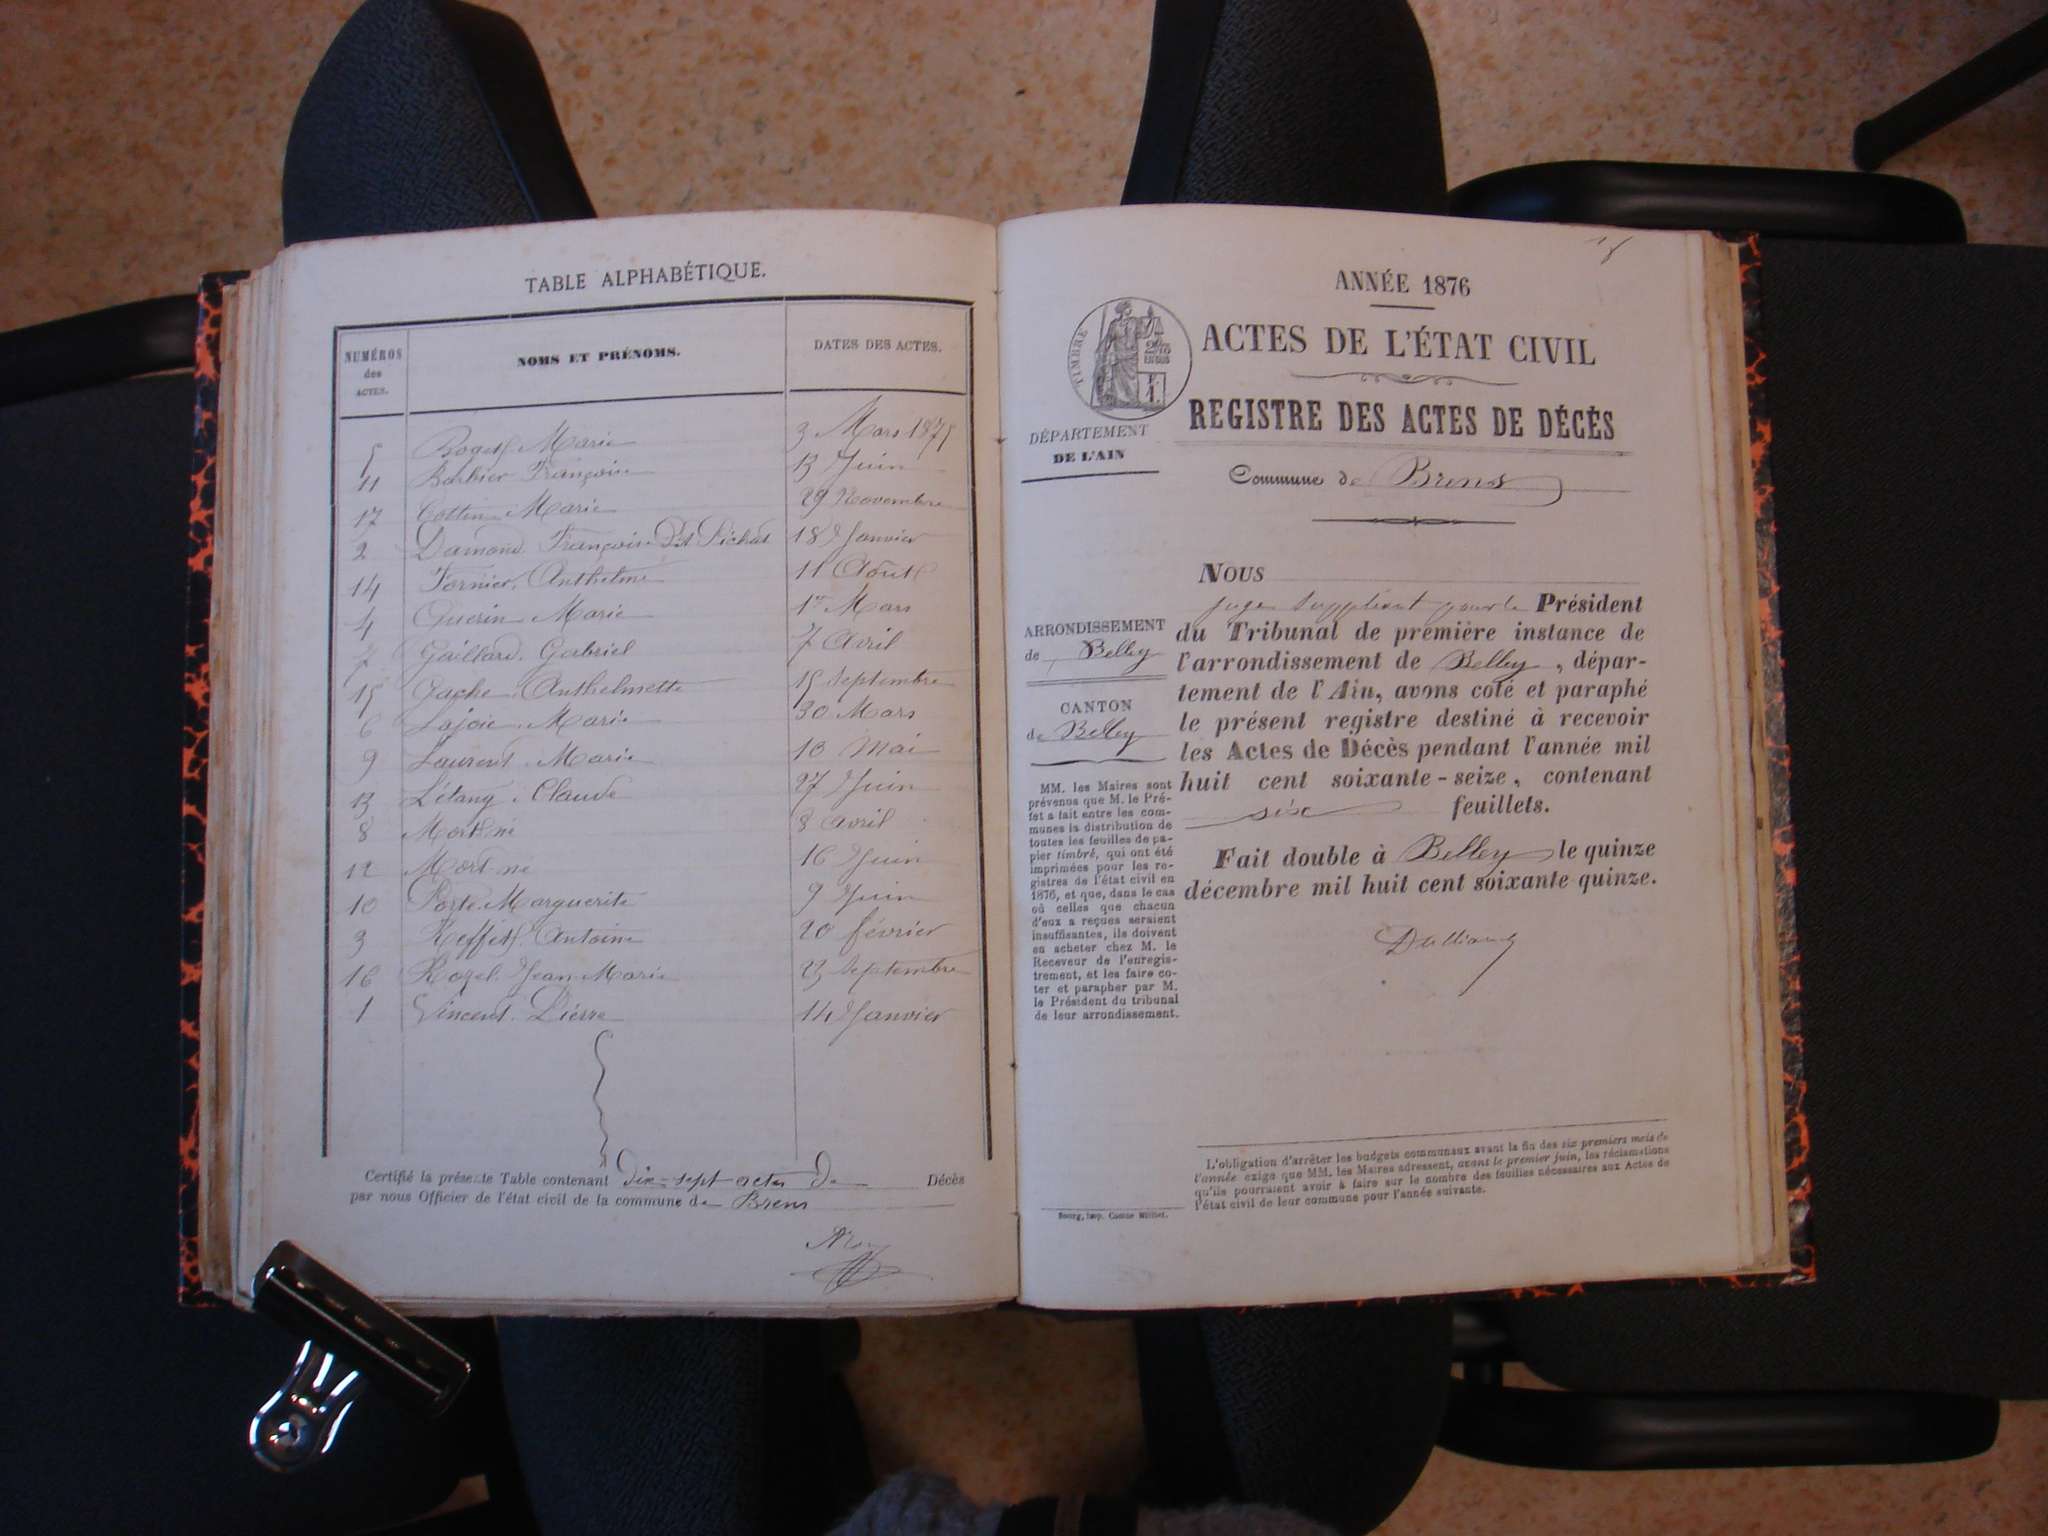 TABLE ALPHABÉTIQUE.
NUMÉROS des ACTES. NOMS ET PRÉNOMS. DATES DES ACTES.
5 Boget Marie 3 Mars 1875
11 Barbier Françoise 13 Juin
17 Cottin Marie 29 Novembre
2 Damond Françoise Pichat 18 Janvier
14 Fornier Anthelme 11 Août
4 Guerin Marie 1er Mars
7 Gaillard Gabriel 7 Avril
15 Gache Anthelmette 15 Septembre
6 Lajoie Marie 30 Mars
9 Laurent Marie 10 Mai
13 Létang Claude 27 Juin
8 Mort-né 8 Avril
12 Mort-né 16 Juin
10 Porte Marguerite 9 Juin
3 Reffet Antoine 20 février
16 Rozel Jean Marie 23 Septembre
1 Vincent Pierre 14 Janvier
Certifié la présente Table contenant dix-sept actes de Décès
par nous Officier de l'état civil de la commune de Brens
ANNÉE 1876
ACTES DE L'ÉTAT CIVIL
TIMBRE
REGISTRE DES ACTES DE DÉCÈS
DÉPARTEMENT
DE L'AIN
Commune de Brens
ARRONDISSEMENT
de Belley
CANTON
de Belley
MM. les Maires sont
prévenus que M. le Pré-
fet a fait entre les com-
munes la distribution de
toutes les feuilles de pa-
pier timbré, qui ont été
imprimées pour les re-
gistres de l'état civil en
1876, et que, dans le cas
où celles que chacun
d'eux a reçues seraient
insuffisantes, ils doivent
en acheter chez M. le
Receveur de l'enregis-
trement, et les faire co-
ter et parapher par M.
le Président du tribunal
de leur arrondissement.
NOUS
juge suppléant pour le Président
du Tribunal de première instance de
l'arrondissement de Belley, dépar-
tement de l'Ain, avons coté et paraphé
le présent registre destiné à recevoir
les Actes de Décès pendant l'année mil
huit cent soixante-seize, contenant
six feuillets.
Fait double à Belley le quinze
décembre mil huit cent soixante-quinze.
L'obligation d'arrêter les budgets communaux avant la fin des six premiers mois de
l'année exige que MM. les Maires adressent, avant le premier juin, les réclamations
qu'ils pourraient avoir à faire sur le nombre des feuilles nécessaires aux Actes de
l'état civil de leur commune pour l'année suivante.
Bourg, Imp. Comte Milliet.